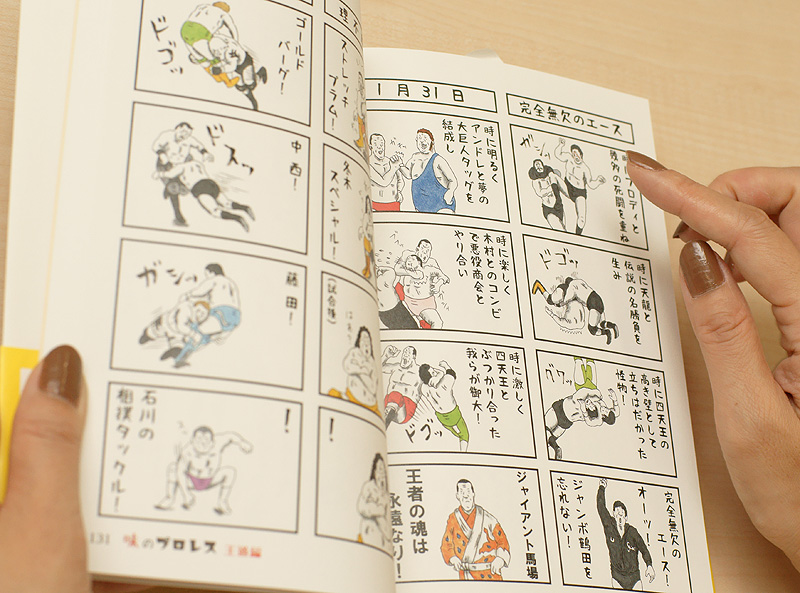 完全無欠のエース
ブロディと
幾多の死闘を重ね
ガシッ
時に天龍と
伝説の名勝負を
生み
ドゴッ
時に四天王の
高き壁として
立ちはだかった
怪物!
グワッ
完全無欠の
エース!
オーッ!
ジャンボ鶴田を
忘れない!
1月31日
時に明るく
アンドレと夢の
大巨人タッグを
結成し
時に楽しく
木村とのコンビ
で悪役商会と
やり合い
時に激しく
四天王と
ぶつかり合った
我らが御大!
ドゴッ
ジャイアント馬場
王者の魂は
永遠なり!
ストレッチ
プラム!
冬木
スペシャル!
(試合後)
!
ゴールド
バーグ!
ドゴッ
中西!
ドスッ
藤田!
ガシッ
!
石川の
相撲タックル!
131 味のプロレス